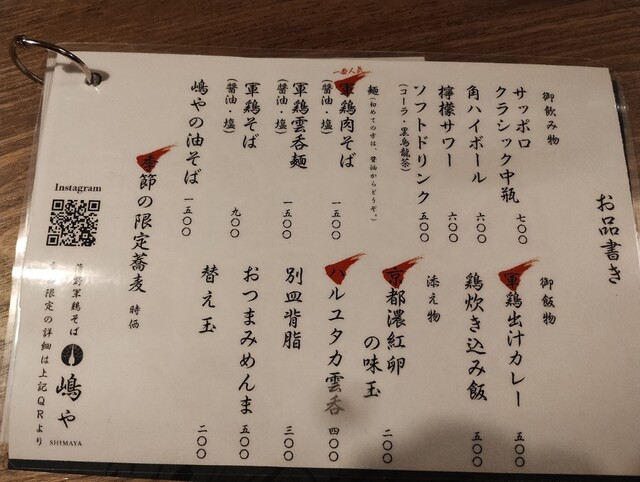 お品書き
御飲み物
サッポロ
クラシック中瓶 七〇〇
角ハイボール 六〇〇
檸檬サワー 六〇〇
ソフトドリンク 五〇〇
(コーラ・黒烏龍茶)
麺(初めての方は、醤油からどうぞ。)
一番人気
軍鶏肉そば 一五〇〇
(醤油・塩)
軍鶏雲呑麺 一五〇〇
(醤油・塩)
軍鶏そば 九〇〇
(醤油・塩)
嶋やの油そば 一五〇〇
季節の限定蕎麦 時価
御飯物
軍鶏出汁カレー 五〇〇
鶏炊き込み飯 五〇〇
添え物
京都濃紅卵
の味玉 二〇〇
ハルユタカ雲呑 四〇〇
別皿背脂 三〇〇
おつまみめんま 五〇〇
替え玉 二〇〇
Instagram
軍鶏そば
嶋や
SHIMAYA
限定の詳細は上記QRより